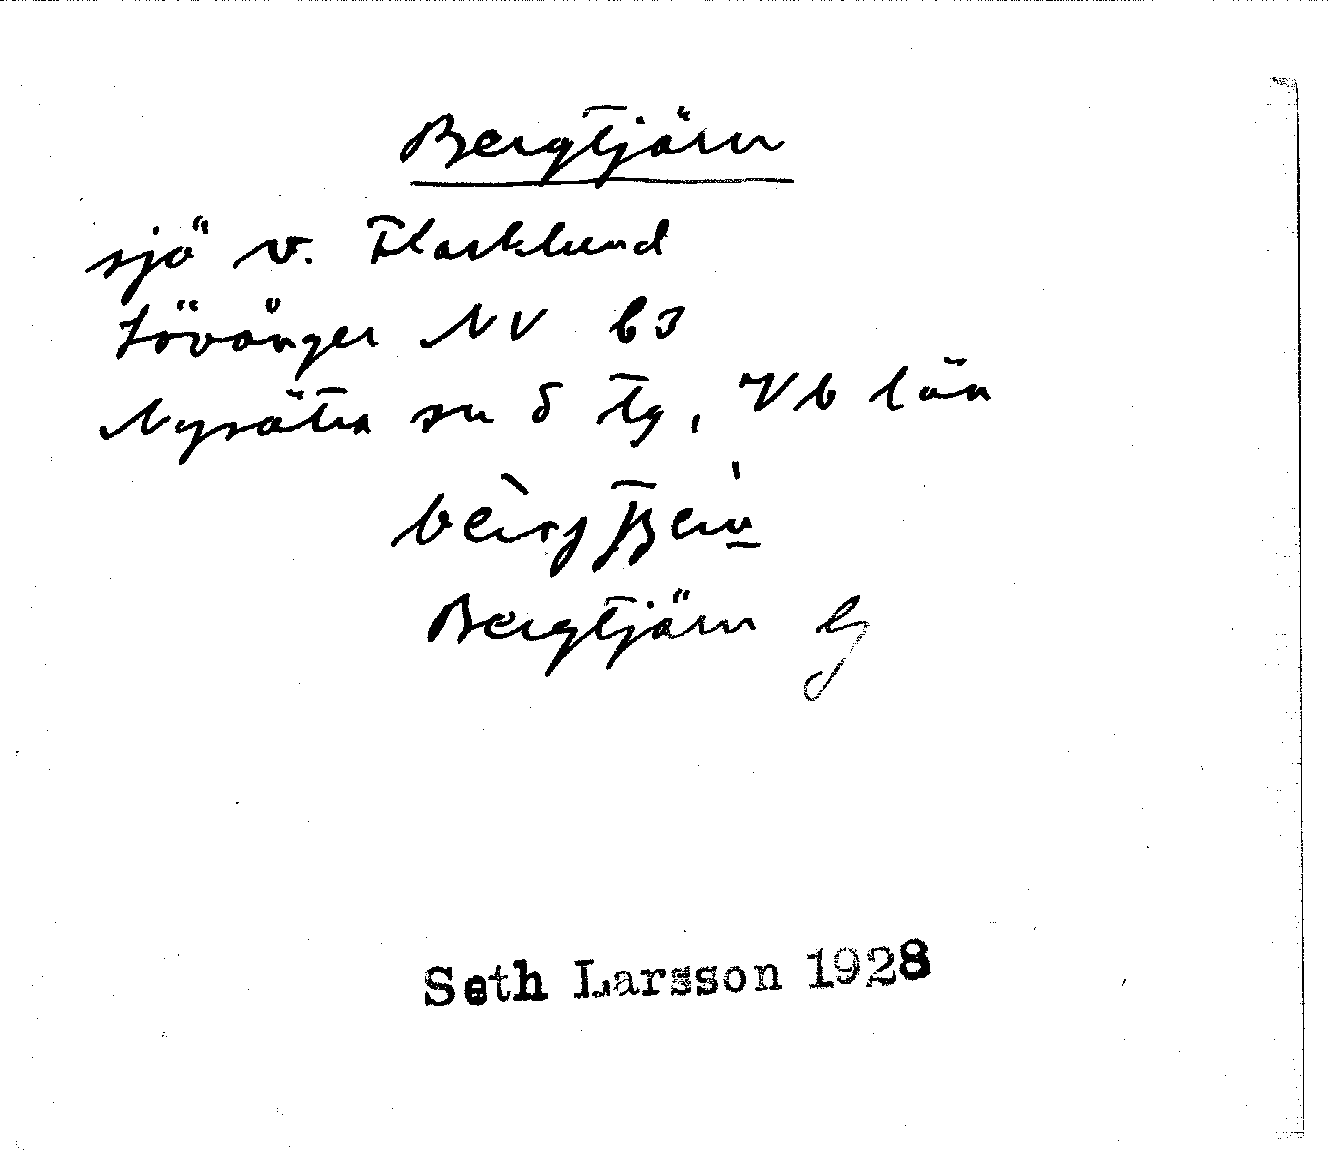 Bergtjärn
sjö v. Flarklund
Lövånger NV b3
Nysätra sn S Tg, Vb län
Bergtjärn
Seth Larsson 1928